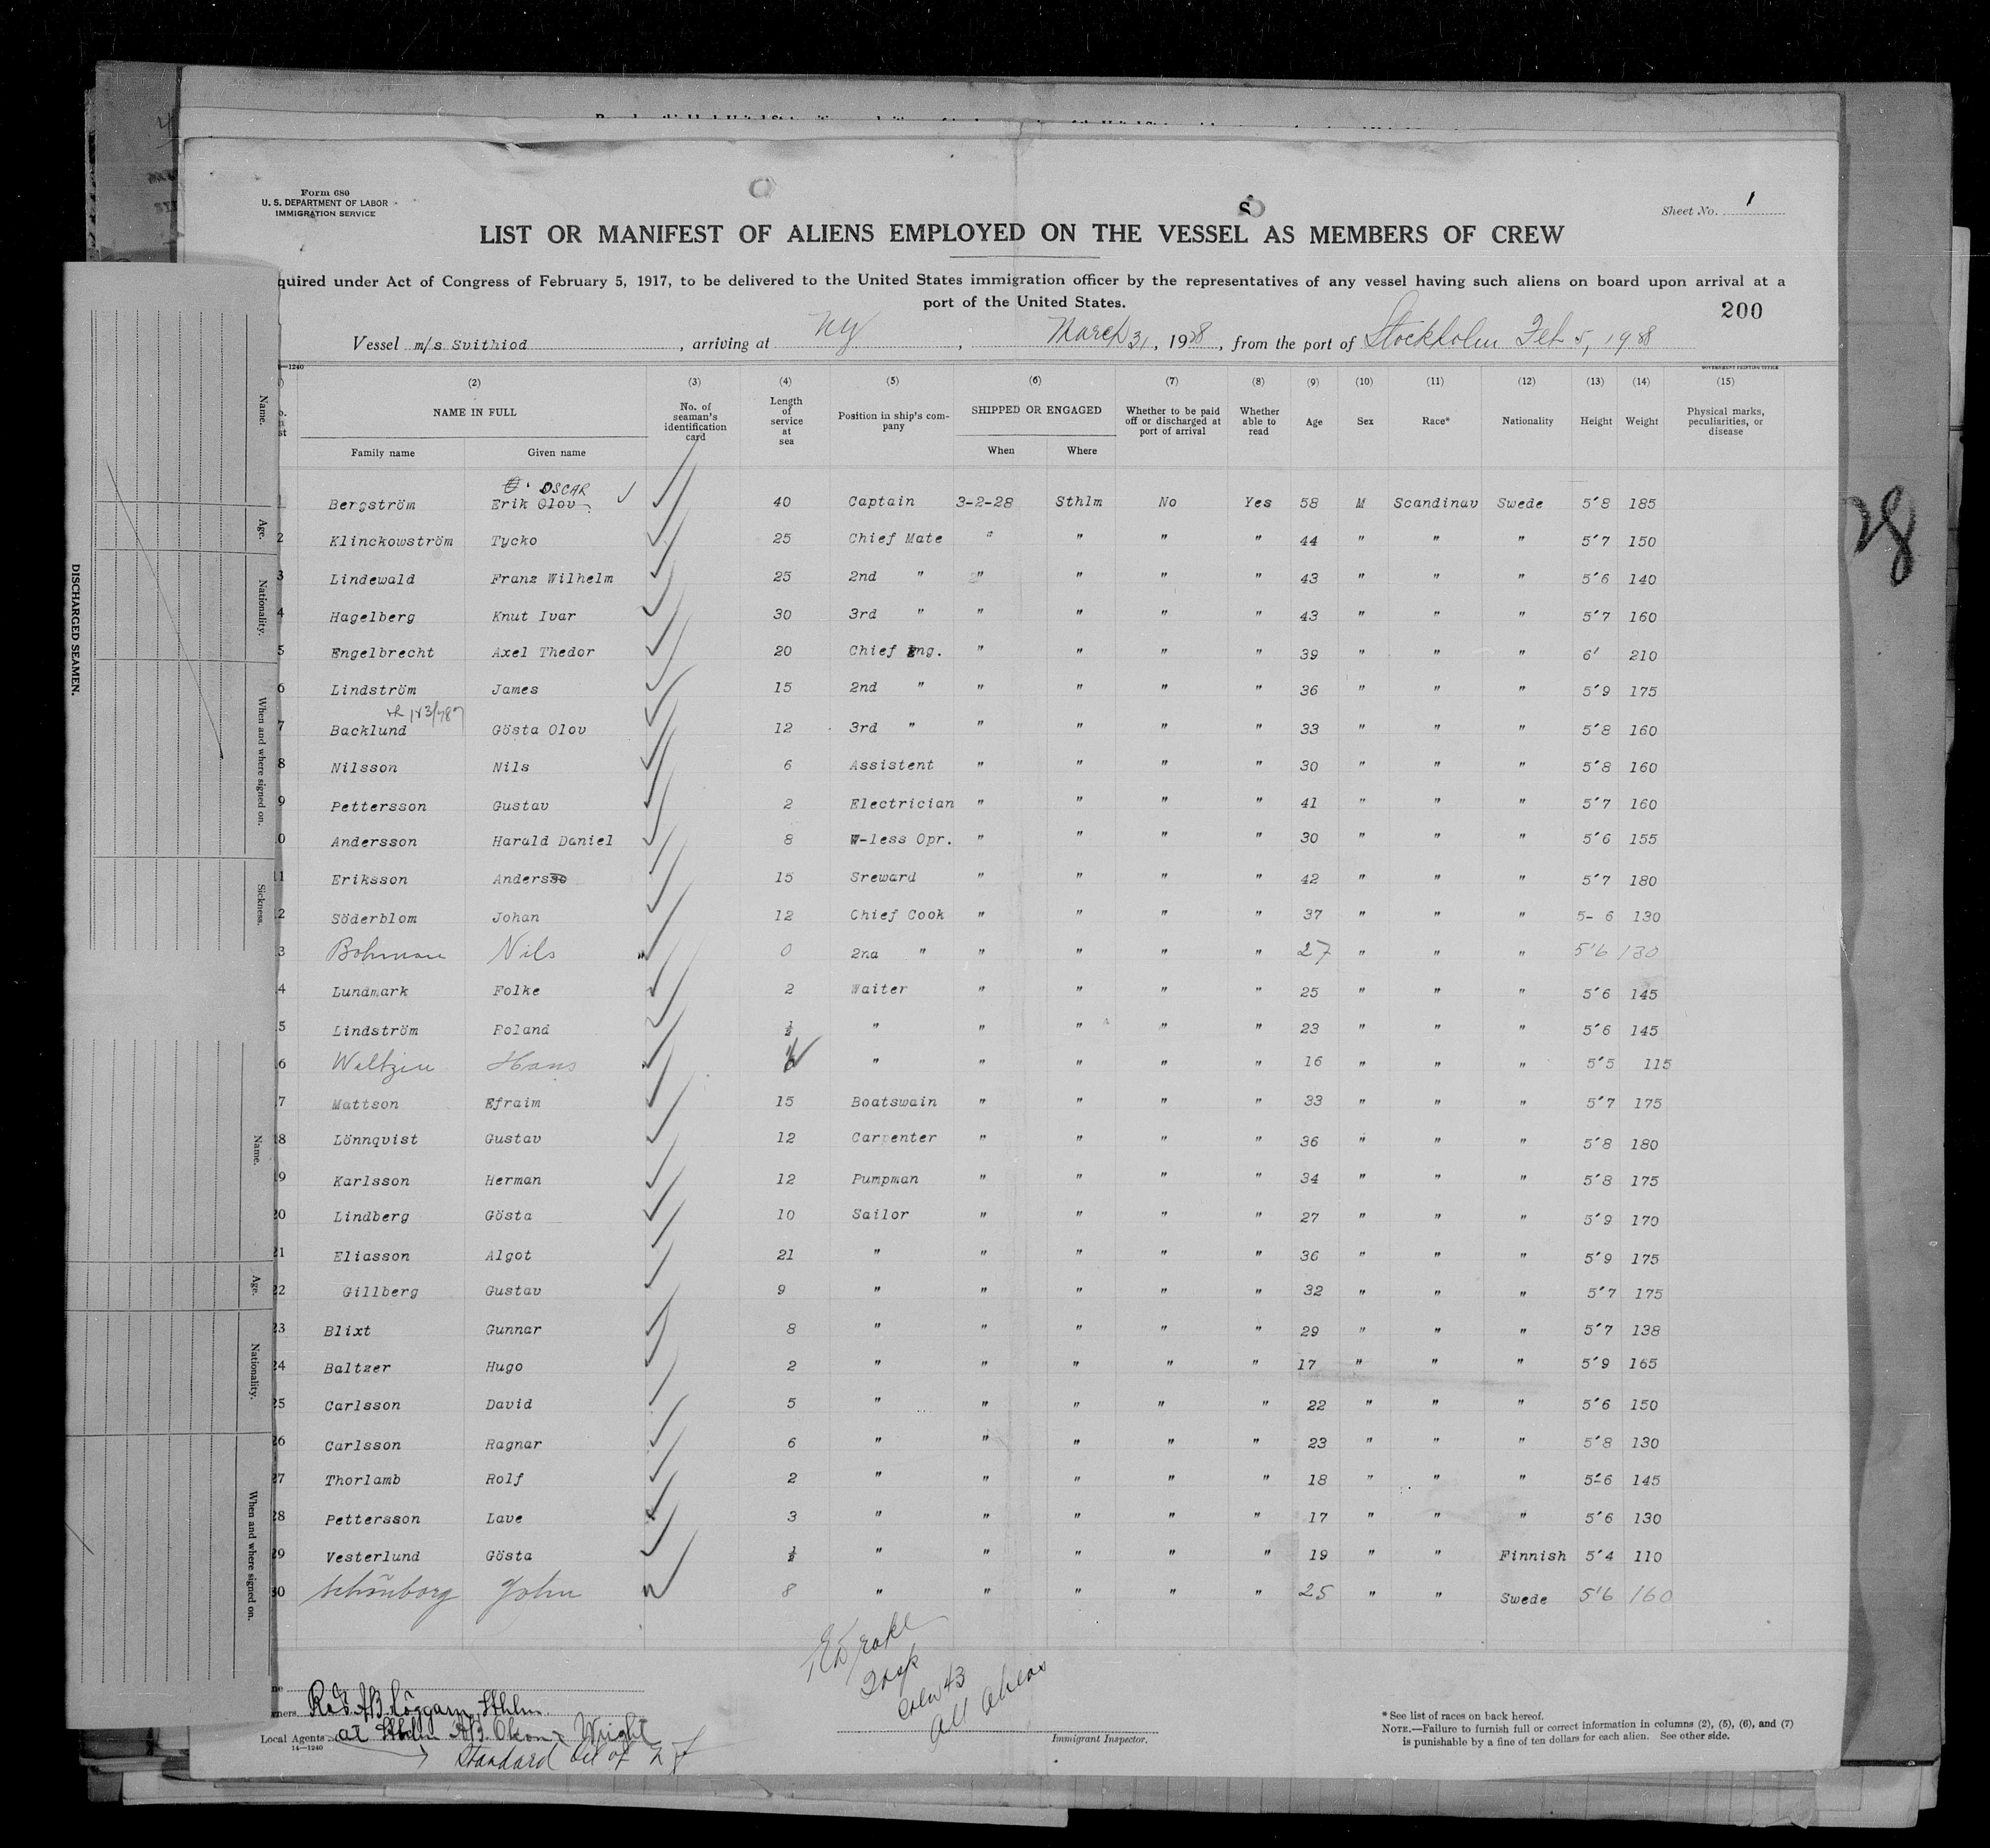 Form 680
U. S. DEPARTMENT OF LABOR
IMMIGRATION SERVICE
Sheet No. 1
LIST OR MANIFEST OF ALIENS EMPLOYED ON THE VESSEL AS MEMBERS OF CREW
quired under Act of Congress of February 5, 1917, to be delivered to the United States immigration officer by the representatives of any vessel having such aliens on board upon arrival at a
port of the United States.
200
Vessel m/s Svithiod, arriving at NY, March 31, 1928, from the port of Stockholm Feb 5, 1928
(2) (3) (4) (5) (6) (7) (8) (9) (10) (11) (12) (13) (14) (15)
NAME IN FULL
Family name Given name
No. of seaman's identification card
Length of service at sea
Position in ship's company
SHIPPED OR ENGAGED
When Where
Whether to be paid off or discharged at port of arrival
Whether able to read
Age
Sex
Race*
Nationality
Height
Weight
Physical marks, peculiarities, or disease
OSCAR
1 Bergström Erik Olov 40 Captain 3-2-28 Sthlm No Yes 58 M Scandinav Swede 5'8 185
2 Klinckowström Tycko 25 Chief Mate " " " " 44 " " " 5'7 150
3 Lindewald Franz Wilhelm 25 2nd " " " " " 43 " " " 5'6 140
4 Hagelberg Knut Ivar 30 3rd " " " " " 43 " " " 5'7 160
5 Engelbrecht Axel Thedor 20 Chief Eng. " " " " 39 " " " 6' 210
6 Lindström James 15 2nd " " " " " 36 " " " 5'9 175
7 Backlund Gösta Olov 12 3rd " " " " " 33 " " " 5'8 160
8 Nilsson Nils 6 Assistent " " " " 30 " " " 5'8 160
9 Pettersson Gustav 2 Electrician " " " " 41 " " " 5'7 160
0 Andersson Harald Daniel 8 W-less Opr. " " " " 30 " " " 5'6 155
11 Eriksson Anders 15 Sreward " " " " 42 " " " 5'7 180
2 Söderblom Johan 12 Chief Cook " " " " 37 " " " 5- 6 130
3 Bohman Nils 0 2na " " " " " 27 " " " 5'6 130
4 Lundmark Folke 2 Waiter " " " " 25 " " " 5'6 145
5 Lindström Roland ½ " " " " " 23 " " " 5'6 145
6 Weltzin Hans " " " " " 16 " " " 5'5 115
7 Mattson Efraim 15 Boatswain " " " " 33 " " " 5'7 175
18 Lönnqvist Gustav 12 Carpenter " " " " 36 " " " 5'8 180
19 Karlsson Herman 12 Pumpman " " " " 34 " " " 5'8 175
20 Lindberg Gösta 10 Sailor " " " " 27 " " " 5'9 170
21 Eliasson Algot 21 " " " " " 36 " " " 5'9 175
22 Gillberg Gustav 9 " " " " " 32 " " " 5'7 175
23 Blixt Gunnar 8 " " " " " 29 " " " 5'7 138
24 Baltzer Hugo 2 " " " " " 17 " " " 5'9 165
25 Carlsson David 5 " " " " " 22 " " " 5'6 150
26 Carlsson Ragnar 6 " " " " " 23 " " " 5'8 130
27 Thorlamb Rolf 2 " " " " " 18 " " " 5'6 145
28 Pettersson Lave 3 " " " " " 17 " " " 5'6 130
29 Vesterlund Gösta ½ " " " " " 19 " " Finnish 5'4 110
30 Schönborg John 8 " " " " " 25 " " Swede 5'6 160
Crew 43
All Aliens
Local Agents
14—1240
Standard Oil of N J
Immigrant Inspector.
* See list of races on back hereof.
NOTE.—Failure to furnish full or correct information in columns (2), (5), (6), and (7)
is punishable by a fine of ten dollars for each alien. See other side.
DISCHARGED SEAMEN.
Name.
Age.
Nationality.
When and where signed on.
Sickness.
Name.
Age.
Nationality.
When and where signed on.
28